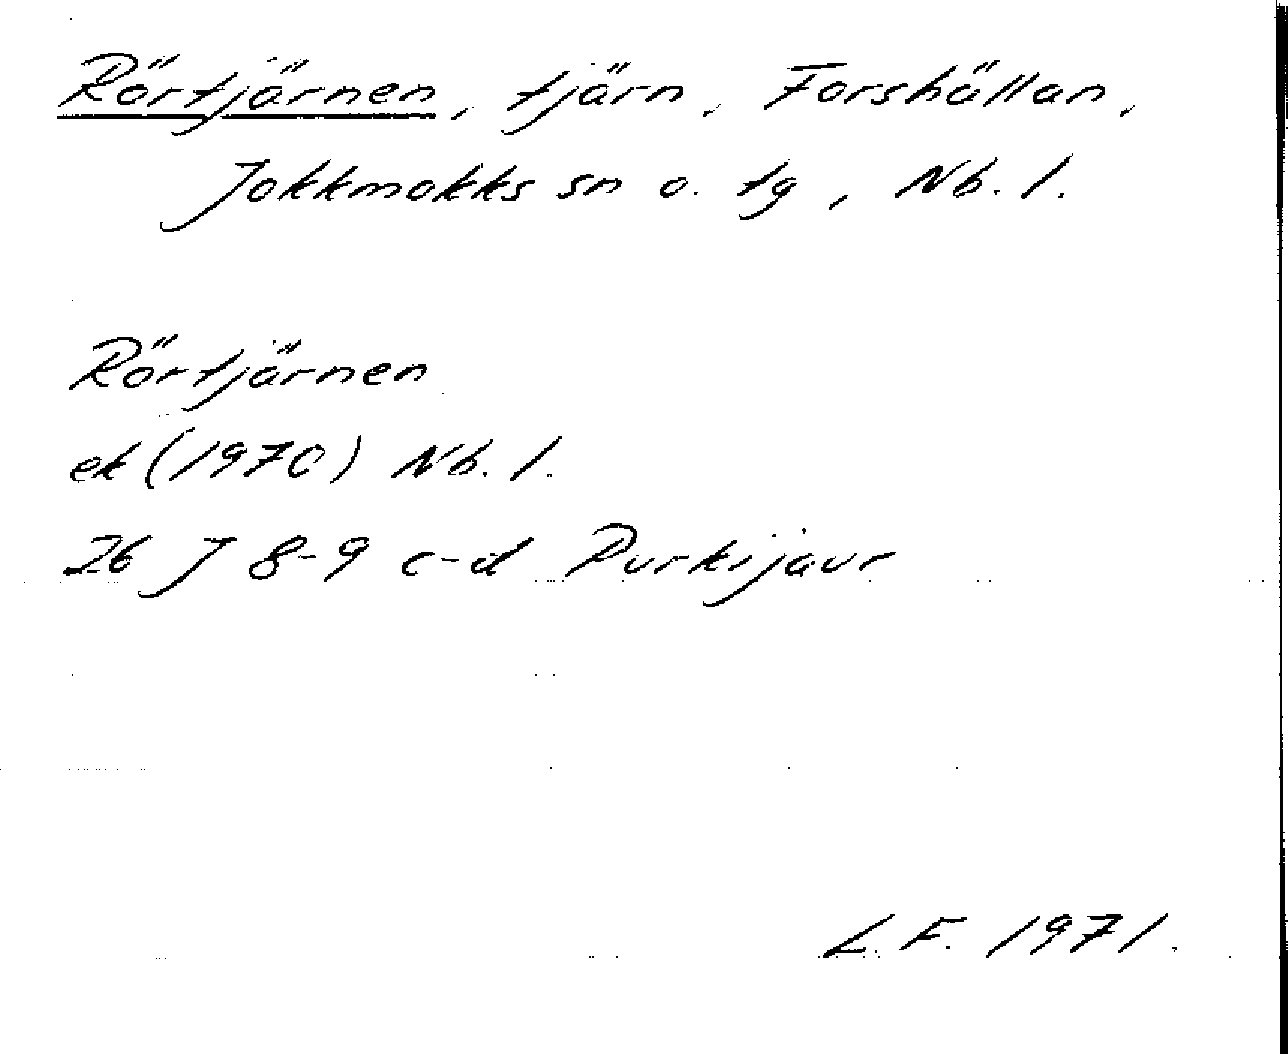 Rörtjärnen, tjärn, Forshällan,
Jokkmokks sn o. tg, Nb. l.
Rörtjärnen
ek (1970) Nb. l.
26 J 8-9 c-d Purkijaur
L. F. 1971.